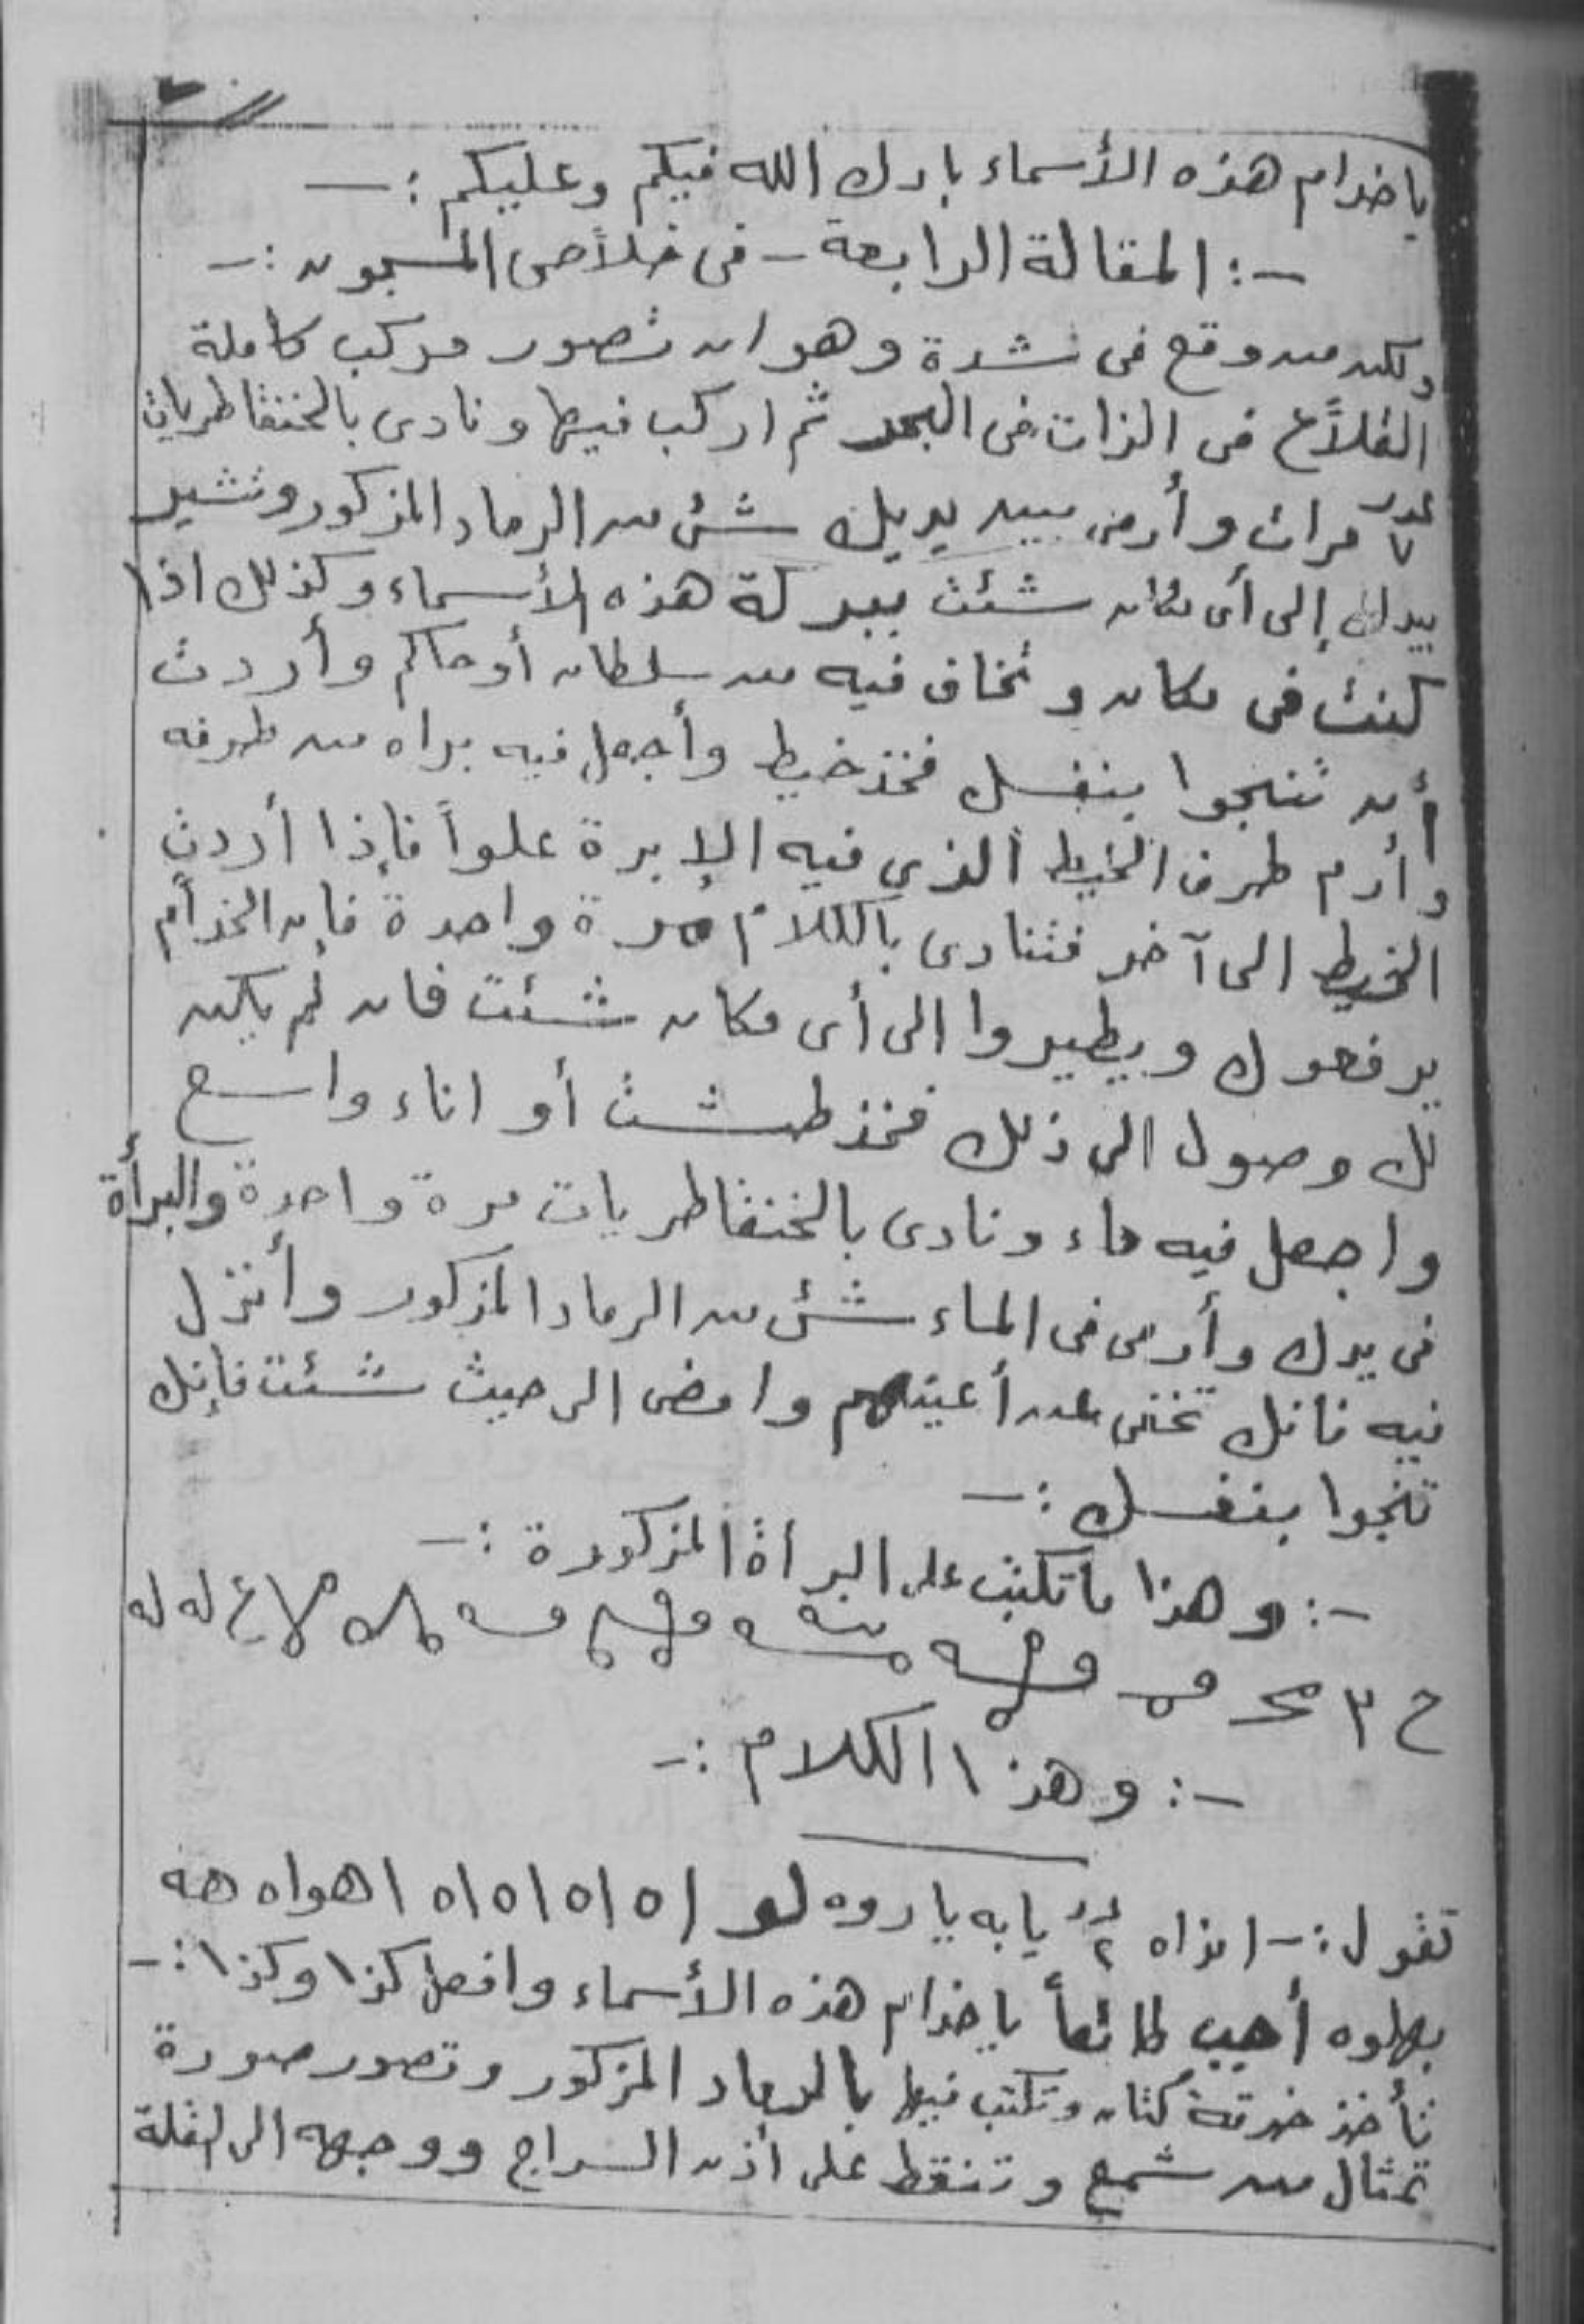 ياخدام هذه الأسماء بارك الله فيكم وعليكم :ــ
ــ: المقالة الرابعة - فى خلاص المسجون :ــ
ولكن من وقع فى شدة وهو ان تصور مركب كاملة
القلاع فى الذات فى البحر ثم اركب فيها ونادى بالخنفاطريات
عدد ٧ مرات وأرمى بين يديك شئ من الرماد المذكور وتشير
بيدك إلى أى مكان شئت ببركة هذه الأسماء وكذلك اذا
كنت فى مكان وتخاف فيه من سلطان أو حاكم وأردت
أن تنجوا بنفسك فخذ خيط وأجعل فيه براه من طرفه
وأرم طرف الخيط الذي فيه الإبرة علواً فإذا أردت
الخيط الى آخر فتنادى بالكلام مرة واحدة فإن الخدام
يرفعوك ويطيروا الى أى مكان شئت فان لم يكن
لك وصول الى ذلك فخذ طشت أو اناء واسع
واجعل فيه ماء ونادى بالخنفاطريات مرة واحدة والبرأة
فى يدك وأرمى فى الماء شئ من الرماد المذكور وأنزل
فيه فانك تختفى عن أعينهم وامضى الى حيث شئت فإنك
تنجوا بنفسك :ــ
ــ: وهذا ما تكتب على البرأة المذكورة :ــ
ــ: وهذا الكلام :ــ
تقول :ــ انداه ٢ يا به ياروه لو ا٥ا٥ا٥ا٥ا٥ اهواه هه
بهلوه أجيب طائعاً ياخدام هذه الأسماء وافعل كذا وكذا :ــ
تأخذ خرقة كتان وتكتب فيها بالرماد المذكور وتصور صورة
تمثال من شمع وتنقط على أذن السراج ووجهه الى القلة